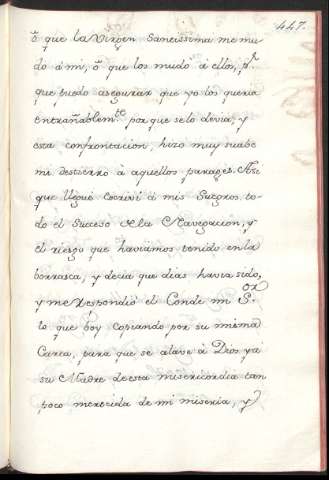 447.
ô que la Virgen Santissima me mu
do â mi, ô que los mudo â ellos, p.r
que puedo asegurar que yo los queria
entrañablem.te por que se lo devia, y
esta confrontacion, hizo muy suabe
mi destierro â aquellos parages. Asi
que llegué escriví â mis Suegros to-
do el Suceso de la Navegacion, y
el riesgo que haviamos tenido en la
borrasca, y decia que dias havia sido,
y me respondió el Conde mi S.or
lo que boy copiando por su misma
Carta, para que se alave â Dios ya
su Madre de esta misericordia tan
poco merecida de mi miseria, y